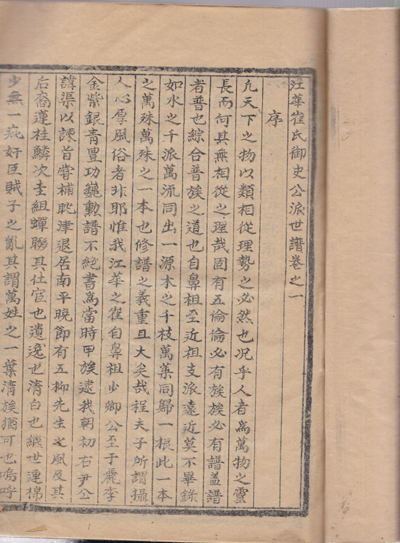 江華崔氏御史公派世譜卷之一
序
凡天下之物以類相從理勢之必然也况乎人者爲萬物之靈
長而何其無相從之理哉國有五倫倫必有族族必有譜盖譜
者普也綜合普族之道也自鼻祖至近祖支派遠近莫不畢錄
如水之千派萬流同出一源木之千枝萬葉同歸一根此一本
之萬殊萬殊之一本也修譜之義重且大矣哉程夫子所謂攝
人心厚風俗者非耶惟我江華之崔自鼻祖少卿公至于麗季
金紫銀青豊功勳譜不絶書爲當時甲族逮我朝初右尹公
諱渠以諫首嘗補 津退居南平晚節有五柳先生之風及其
后裔蓬桂麟次圭組蟬聯其仕宦也遺逸也清白也綴世連棉
少無一疵奸臣賊子之亂其謂萬姓之一葉清族猶可也嗚呼